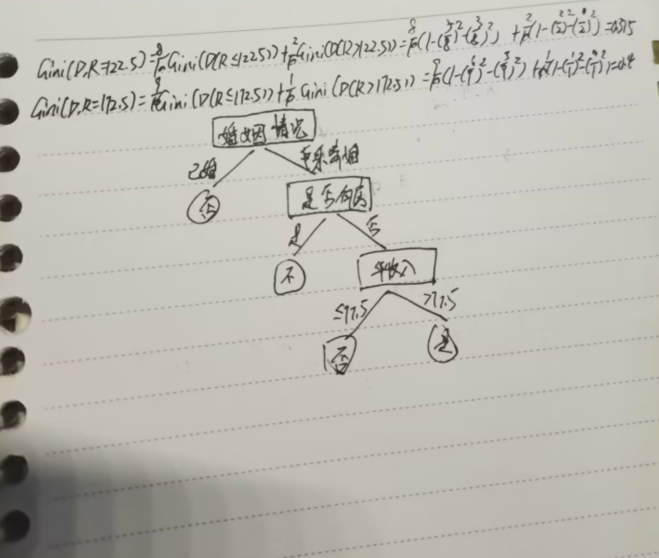 Gini(D,R=122.5)=8/10Gini(D(R≤122.5))+2/10Gini(D(R>122.5))=8/10(1-(5/8)²-(3/8)²)+2/10(1-(2/2)²-(0/2)²)=0.375
Gini(D,R=172.5)=9/10Gini(D(R≤172.5))+1/10Gini(D(R>172.5))=9/10(1-(6/9)²-(3/9)²)+1/10(1-(1/1)²-(0/1)²)=0.4
婚姻情况
已婚
否
是否有房
是
否
不
年收入
≤77.5
>77.5
否
是